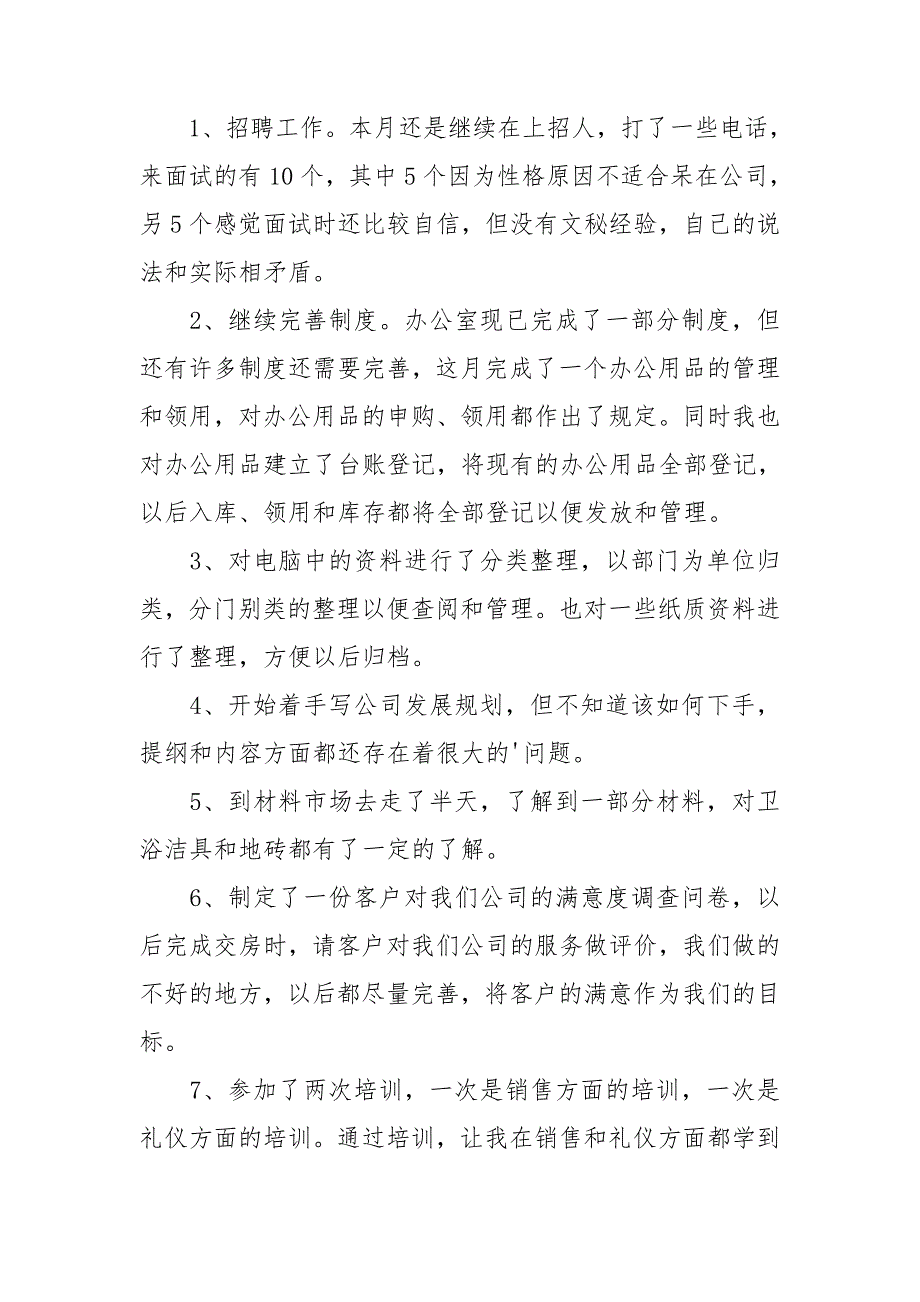 1、招聘工作。本月还是继续在上招人，打了一些电话，
来面试的有10个，其中5个因为性格原因不适合呆在公司，
另5个感觉面试时还比较自信，但没有文秘经验，自己的说
法和实际相矛盾。
2、继续完善制度。办公室现已完成了一部分制度，但
还有许多制度还需要完善，这月完成了一个办公用品的管理
和领用，对办公用品的申购、领用都作出了规定。同时我也
对办公用品建立了台账登记，将现有的办公用品全部登记，
以后入库、领用和库存都将全部登记以便发放和管理。
3、对电脑中的资料进行了分类整理，以部门为单位归
类，分门别类的整理以便查阅和管理。也对一些纸质资料进
行了整理，方便以后归档。
4、开始着手写公司发展规划，但不知道该如何下手，
提纲和内容方面都还存在着很大的'问题。
5、到材料市场去走了半天，了解到一部分材料，对卫
浴洁具和地砖都有了一定的了解。
6、制定了一份客户对我们公司的满意度调查问卷，以
后完成交房时，请客户对我们公司的服务做评价，我们做的
不好的地方，以后都尽量完善，将客户的满意作为我们的目
标。
7、参加了两次培训，一次是销售方面的培训，一次是
礼仪方面的培训。通过培训，让我在销售和礼仪方面都学到